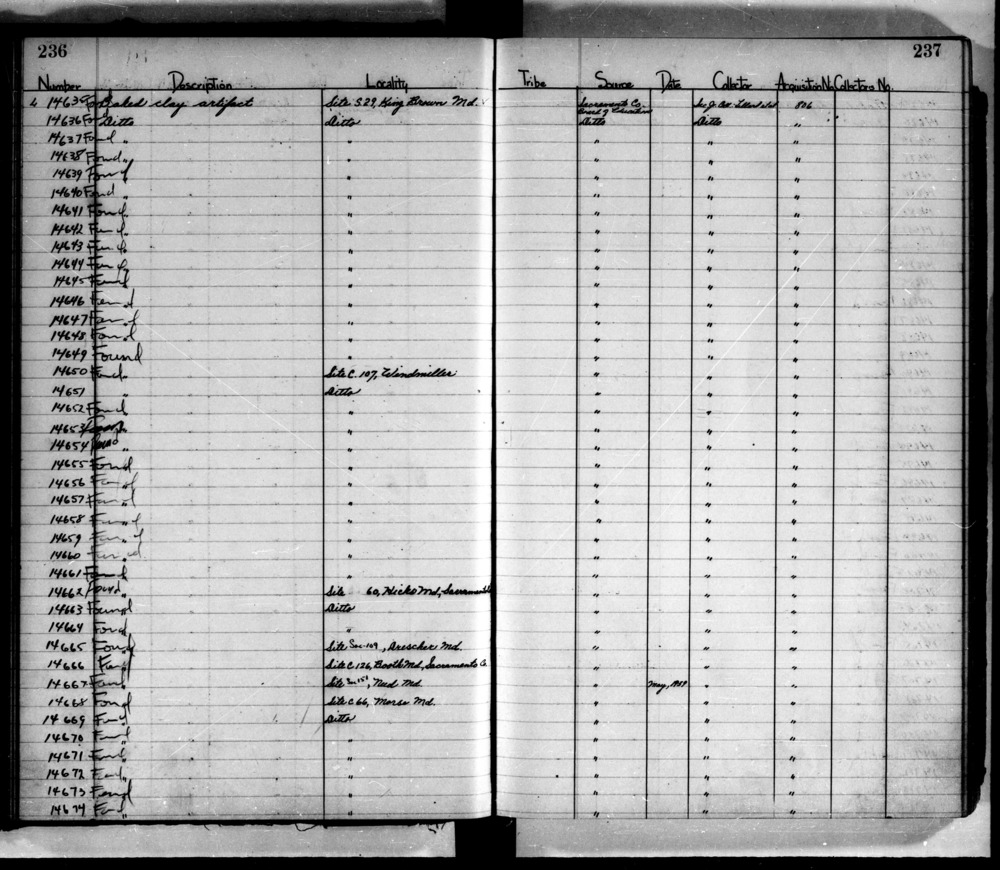 236 237
Number Description Locality Tribe Source Date Collector Acquisition No. Collectors No.
14635 Found Baked clay artifact Site S.29, King Brown Md. Sacramento Co. Board of Education 806
14636 Ditto Ditto Ditto Ditto "
14637 Found " " " " "
14638 Found " " " " "
14639 Found " " " " "
14640 Found " " " " "
14641 Found " " " " "
14642 Found " " " " "
14643 Found " " " " "
14644 Found " " " " "
14645 Found " " " " "
14646 Found " " " " "
14647 Found " " " " "
14648 Found " " " " "
14649 Found " " " " "
14650 Found " Site C.107, Windmiller " " "
14651 " Ditto " " "
14652 Found " " " " "
14653 Found " " " " "
14654 Found " " " " "
14655 Found " " " " "
14656 Found " " " " "
14657 Found " " " " "
14658 Found " " " " "
14659 Found " " " " "
14660 Found " " " " "
14661 Found " " " " "
14662 Found " Site 60, Hicks Md, Sacramento " " "
14663 Found " Ditto " " "
14664 Found " " " " "
14665 Found " Site Sac-109, Drescher Md. " " "
14666 Found " Site C.126, Booth Md, Sacramento Co. " " "
14667 Found " Site Sac 151, Need Md. " May, 1937 " "
14668 Found " Site C 66, Morse Md. " " "
14669 Found " Ditto " " "
14670 Found " " " " "
14671 Found " " " " "
14672 Found " " " " "
14673 Found " " " " "
14674 Found " " " " "